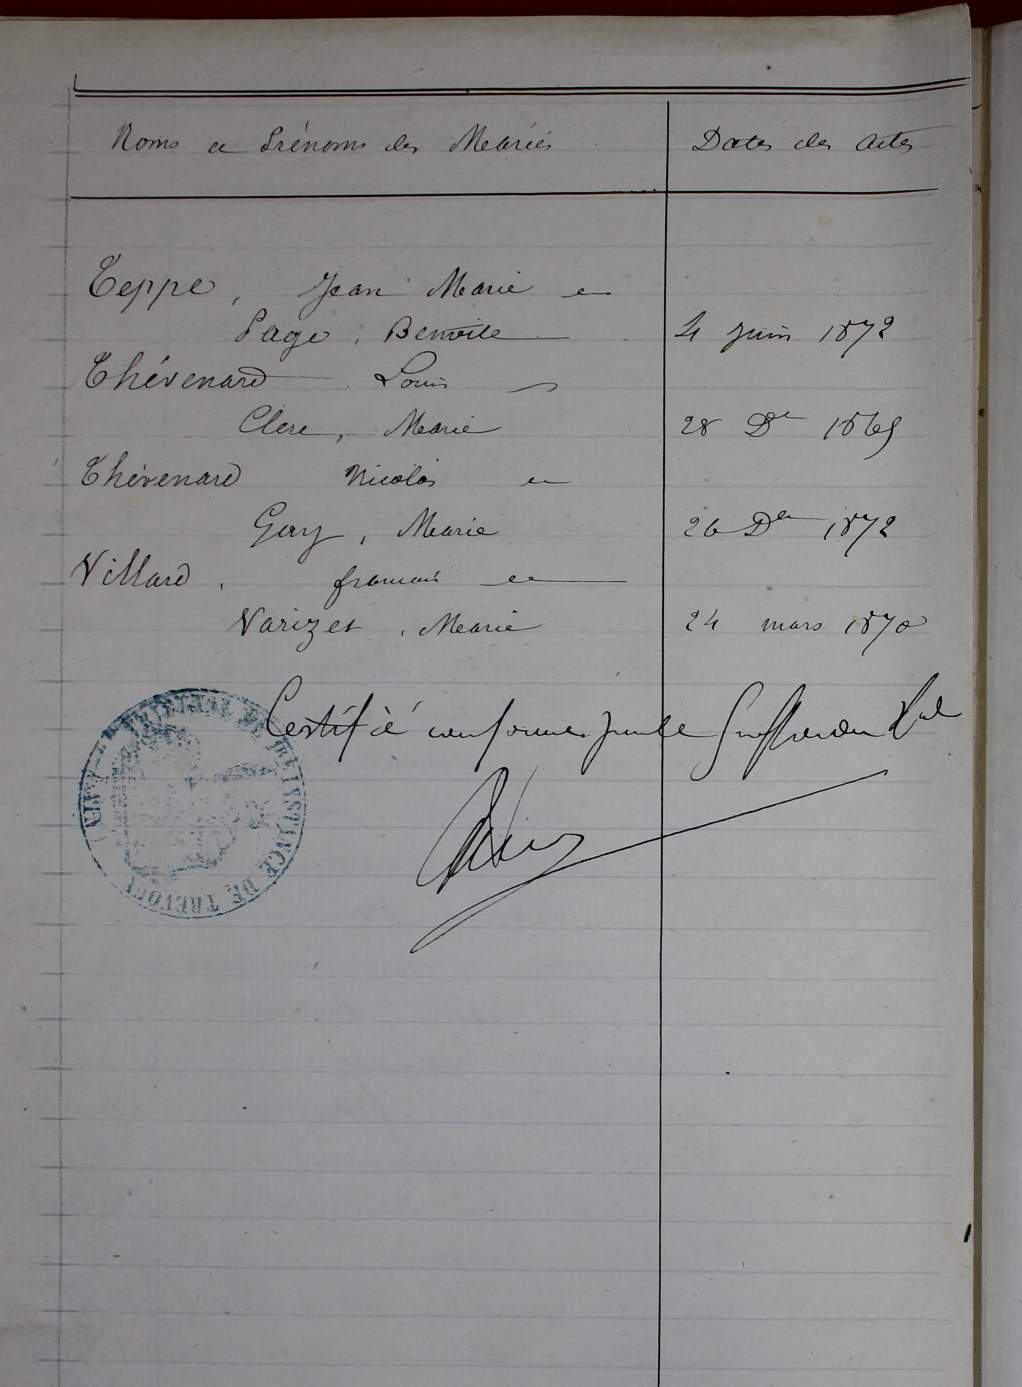 Noms et Prénoms des Mariés Dates des Actes
Teppe, Jean Marie et
Page, Benoite 4 Juin 1872
Thévenard Louis et
Clerc, Marie 28 Dre 1869
Thévenard Nicolas et
Gay, Marie 26 Dre 1872
Villard, françois et
Varizet, Marie 24 mars 1870
Certifié conforme par le Greffier du
TRIBUNAL DE 1RE INSTANCE DE TREVOUX (AIN)